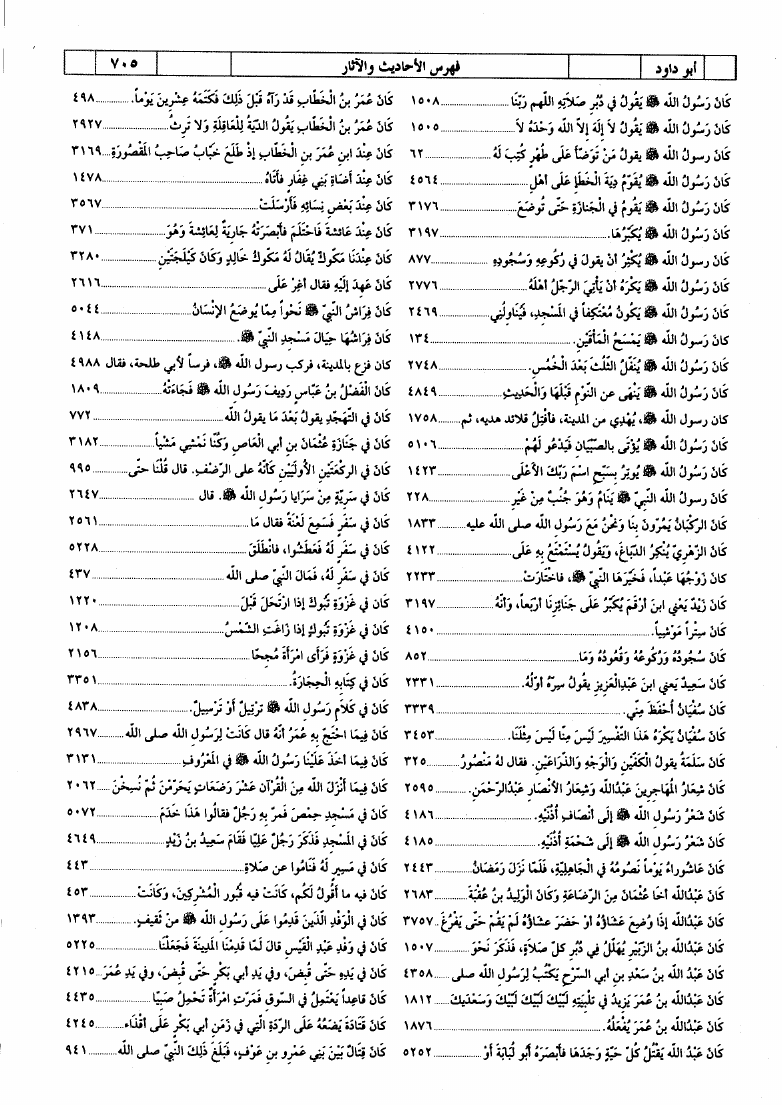 أبو داود
فهرس الأحاديث والآثار
٧٠٥
كَانَ رَسُولُ الله ﷺ يَقُولُ في دُبُرِ صَلَاتِهِ اللهم رَبَّنَا ........ ١٥٠٨
كَانَ رَسُولُ الله ﷺ يَقُولُ لاَ إِلَهَ إِلاَّ الله وَحْدَهُ لاَ ........ ١٥٠٥
كَانَ رسولُ الله ﷺ يقولُ مَنْ تَوَضَّأَ عَلَى طُهْرٍ كُتِبَ لَهُ ........ ٦٢
كَانَ رَسُولُ الله ﷺ يُقَوِّمُ دِيَةَ الْخَطَإِ عَلَى أَهْلِ ........ ٤٥٦٤
كَانَ رَسُولُ الله ﷺ يَقُومُ في الْجَنَازَةِ حَتَّى تُوضَعَ ........ ٣١٧٦
كَانَ رَسُولُ الله ﷺ يُكَبِّرُهَا. ........ ٣١٩٧
كَانَ رسولُ الله ﷺ يُكْثِرُ أنْ يقولَ في رُكُوعِهِ وَسُجُودِهِ ........ ٨٧٧
كَانَ رَسُولُ الله ﷺ يَكْرَهُ أنْ يَأْتِيَ الرَّجُلُ أَهْلَهُ ........ ٢٧٧٦
كَانَ رَسُولُ الله ﷺ يَكُونُ مُعْتَكِفاً في المَسْجِدِ، فَيُنَاوِلُنِي ........ ٢٤٦٩
كان رسولُ الله ﷺ يَمْسَحُ الْمَأْقَيْنِ. ........ ١٣٤
كَانَ رَسُولُ الله ﷺ يُنَفِّلُ الثُّلُثَ بَعْدَ الْخُمُسِ. ........ ٢٧٤٨
كَانَ رَسُولُ الله ﷺ يَنْهَى عن النَّوْمِ قَبْلَهَا وَالْحَدِيثِ ........ ٤٨٤٩
كان رسول الله ﷺ، يُهْدِي من المدينة، فأَفْتِلُ قلائد هديه، ثم ........ ١٧٥٨
كَانَ رَسُولُ الله ﷺ يُؤْتَى بالصِّبْيَانِ فَيَدْعُو لَهُمْ ........ ٥١٠٦
كَانَ رَسُولُ الله ﷺ يُوتِرُ بِسَبِّحِ اسْمَ رَبِّكَ الأعْلَى ........ ١٤٢٣
كَانَ رسولُ الله النَّبيُّ ﷺ يَنَامُ وَهُوَ جُنُبٌ مِنْ غَيْرِ ........ ٢٢٨
كَانَ الرُّكْبَانُ يَمُرُّونَ بِنَا وَنَحْنُ مَعَ رَسُولِ الله صلى الله عليه ........ ١٨٣٣
كَانَ الزُّهْرِيُّ يُنْكِرُ الدِّبَاغَ، وَيَقُولُ يُسْتَمْتَعُ بِهِ عَلَى ........ ٤١٢٢
كَانَ زَوْجُهَا عَبْداً، فَخَيَّرَهَا النَّبيُّ ﷺ، فَاخْتَارَتْ ........ ٢٢٣٣
كَانَ زَيْدٌ يَعْني ابنَ أرْقَمَ يُكَبِّرُ عَلَى جَنَائِزِنَا أرْبَعاً، وَأنَّهُ ........ ٣١٩٧
كَانَ سِتْراً مَوْشِياً. ........ ٤١٥٠
كَانَ سُجُودُهُ وَرُكُوعُهُ وَقُعُودُهُ وَمَا ........ ٨٥٢
كَانَ سَعِيدٌ يَعني ابنَ عَبْدِالْعَزِيزِ يقولُ سِرُّهُ أوَّلُهُ. ........ ٢٣٣١
كَانَ سُفْيَانُ أحْفَظَ مِنِّي. ........ ٣٣٣٩
كَانَ سُفْيَانُ يَكْرَهُ هَذَا التَّفْسِيرَ لَيْسَ مِنَّا لَيْسَ مِثْلَنَا. ........ ٣٤٥٣
كَانَ سَلَمَةُ يقولُ الْكَفَّيْنِ وَالْوَجْهِ وَالذِّرَاعَيْنِ. فقال له مَنْصُورٌ ........ ٣٢٥
كَانَ شِعَارُ المُهَاجِرِينَ عَبْدَالله وَشِعَارُ الأنْصَارِ عَبْدَالرَّحْمَنِ. ........ ٢٥٩٥
كَانَ شَعْرُ رَسُولِ الله ﷺ إلَى أنْصَافِ أُذُنَيْهِ. ........ ٤١٨٦
كَانَ شَعْرُ رَسُولِ الله ﷺ إلَى شَحْمَةِ أُذُنَيْهِ. ........ ٤١٨٥
كَانَ عَاشُورَاءُ يَوْماً نَصُومُهُ في الْجَاهِلِيَّةِ، فَلَمَّا نَزَلَ رَمَضَانُ ........ ٢٤٤٣
كَانَ عَبْدُالله أخَا عُثْمانَ مِنَ الرَّضَاعَةِ وَكَانَ الْوَلِيدُ بنُ عُقْبَةَ ........ ٢٦٨٣
كَانَ عَبْدُالله إذَا وُضِعَ عَشَاؤُهُ أوْ حَضَرَ عشاؤُهُ لَمْ يَقُمْ حَتَّى يَفْرُغَ ........ ٣٧٥٧
كَانَ عَبْدُالله بنُ الزُّبَيْرِ يُهَلِّلُ فِي دُبُرِ كلِّ صَلَاةٍ، فَذَكَرَ نَحْوَ ........ ١٥٠٧
كَانَ عَبْدُالله بنُ سَعْدِ بنِ أبي السَّرْحِ يَكْتُبُ لِرَسُولِ الله صلى ........ ٤٣٥٨
كَانَ عَبْدُالله بنُ عُمَرَ يَزِيدُ في تَلْبِيَتِهِ لَبَّيْكَ لَبَّيْكَ لَبَّيْكَ وَسَعْدَيْكَ ........ ١٨١٢
كَانَ عَبْدُالله بنُ عُمَرَ يَفْعَلُهُ. ........ ١٨٧٦
كَانَ عَبْدُ الله يَقْتُلُ كُلَّ حَيَّةٍ وَجَدَهَا فأبْصَرَهُ أبُو لُبَابَةَ أوْ ........ ٥٢٥٢
كَانَ عُمَرُ بنُ الْخَطَّابِ قَدْ رَآهُ قَبْلَ ذَلِكَ فَكَتَمَهُ عِشْرِينَ يَوْماً. ........ ٤٩٨
كَانَ عُمَرُ بنُ الْخَطَّابِ يَقُولُ الدِّيَةُ لِلْعَاقِلَةِ وَلا تَرِثُ ........ ٢٩٢٧
كَانَ عِنْدَ ابنِ عُمَرَ بنِ الْخَطَّابِ إذْ طَلَعَ خَبَّابٌ صَاحِبُ المَقْصُورَةِ ........ ٣١٦٩
كَانَ عِنْدَ أضَاةِ بَنِي غِفَارٍ فَأَتَاهُ ........ ١٤٧٨
كَانَ عِنْدَ بَعْضِ نِسَائِهِ فَأرْسَلَتْ ........ ٣٥٦٧
كَانَ عِنْدَ عَائشةَ فَاحْتَلَمَ فَأبْصَرَتْهُ جَارِيَةٌ لِعَائِشَةَ وَهُوَ ........ ٣٧١
كَانَ عِنْدَنَا مَكُّوكٌ يُقَالُ لَهُ مَكُّوكُ خَالِدٍ وَكَانَ كَيْلَجَتَيْنِ ........ ٣٢٨٠
كَانَ عَهِدَ إلَيْهِ فقال أغِرْ عَلَى ........ ٢٦١٦
كَانَ فِرَاشُ النَّبيِّ ﷺ نَحْواً مِمَّا يُوضَعُ الإنْسَانُ ........ ٥٠٤٤
كَانَ فِرَاشُهَا حِيَالَ مَسْجِدِ النَّبيِّ ﷺ. ........ ٤١٤٨
كان فزع بالمدينة، فركب رسول الله ﷺ، فرساً لأبي طلحة، فقال ٤٩٨٨
كَانَ الْفَضْلُ بنُ عَبَّاسٍ رَدِيفَ رَسُولِ الله ﷺ فَجَاءَتْهُ ........ ١٨٠٩
كَانَ في التَّهَجُّدِ يقولُ بَعْدَ مَا يقولُ الله ........ ٧٧٢
كَانَ في جَنَازَةِ عُثْمَانَ بنِ أبي الْعَاصِ وَكُنَّا نَمْشِي مَشْياً ........ ٣١٨٢
كَانَ في الركْعَتَيْنِ الأُولَيَيْنِ كَأنَّهُ على الرَّضْفِ. قال قُلْنَا حتَّى ........ ٩٩٥
كَانَ في سَرِيَّةٍ مِنْ سَرَايَا رَسُولِ الله ﷺ. قال ........ ٢٦٤٧
كَانَ في سَفَرٍ فَسَمِعَ لَعْنَةً فقال مَا ........ ٢٥٦١
كَانَ في سَفَرٍ لَهُ فَعَطَشُوا، فانْطَلَقَ ........ ٥٢٢٨
كَانَ في سَفَرٍ لَهُ، فَمَالَ النَّبيُّ صلى الله ........ ٤٣٧
كان في غَزْوَةِ تَبُوكَ إذا ارْتَحَلَ قَبْلَ ........ ١٢٢٠
كَانَ في غَزْوَةِ تَبُوكَ إذا زَاغَتِ الشَّمْسُ ........ ١٢٠٨
كَانَ في غَزْوَةٍ فَرَأى امْرَأةً مُجِحًّا ........ ٢١٥٦
كَانَ في كِتَابِهِ الْحِجَارَةُ. ........ ٣٣٥١
كَانَ في كَلَامِ رَسُولِ الله ﷺ تَرْتِيلٌ أوْ تَرْسِيلٌ. ........ ٤٨٣٨
كَانَ فِيمَا احْتَجَّ بِهِ عُمَرُ أنَّهُ قال كَانَتْ لِرَسُولِ الله صلى الله ........ ٢٩٦٧
كَانَ فِيمَا أخَذَ عَلَيْنَا رَسُولُ الله ﷺ في المَعْرُوفِ ........ ٣١٣١
كَانَ فِيمَا أنْزَلَ الله مِنَ الْقُرْآنِ عَشْرُ رَضَعَاتٍ يُحَرِّمْنَ ثُمَّ نُسِخْنَ ........ ٢٠٦٢
كَانَ في مَسْجِدِ حِمْصَ فَمَرَّ بِهِ رَجُلٌ فقالُوا هَذَا خَدَمَ ........ ٥٠٧٢
كَانَ في المَسْجِدِ فَذَكَرَ رَجُلٌ عَلِيّاً فَقَامَ سَعِيدُ بنُ زَيْدٍ ........ ٤٦٤٩
كَانَ في مَسِيرٍ لَهُ فَنَامُوا عن صَلاةِ ........ ٤٤٣
كَانَ فيه ما أقُولُ لَكُم، كَانَتْ فيه قُبُورُ المُشْرِكِينَ، وَكَانَتْ ........ ٤٥٣
كَانَ في الْوَفْدِ الَّذِينَ قَدِمُوا عَلَى رَسُولِ الله ﷺ مِنْ ثَقِيفٍ. ........ ١٣٩٣
كَانَ في وَفْدِ عَبْدِ الْقَيْسِ قالَ لَمَّا قَدِمْنَا المَدِينَةَ فَجَعَلْنَا ........ ٥٢٢٥
كَانَ في يَدِهِ حَتَّى قُبِضَ، وفي يَدِ أبي بَكْرٍ حَتَّى قُبِضَ، وفي يَدِ عُمَرَ ........ ٤٢١٥
كَانَ قاعِداً يَعْتَمِلُ في السُّوقِ فَمَرَّتِ امْرَأةٌ تَحْمِلُ صَبِيّاً ........ ٤٤٣٥
كَانَ قَتَادَةُ يَضَعُهُ عَلَى الرِّدَّةِ الَّتِي في زَمَنِ أبي بَكْرٍ عَلَى أقْذَاء ........ ٤٢٤٥
كَانَ قِتَالٌ بَيْنَ بَنِي عَمْرِو بنِ عَوْفٍ، فَبَلَغَ ذَلِكَ النَّبيَّ صلى الله ........ ٩٤١